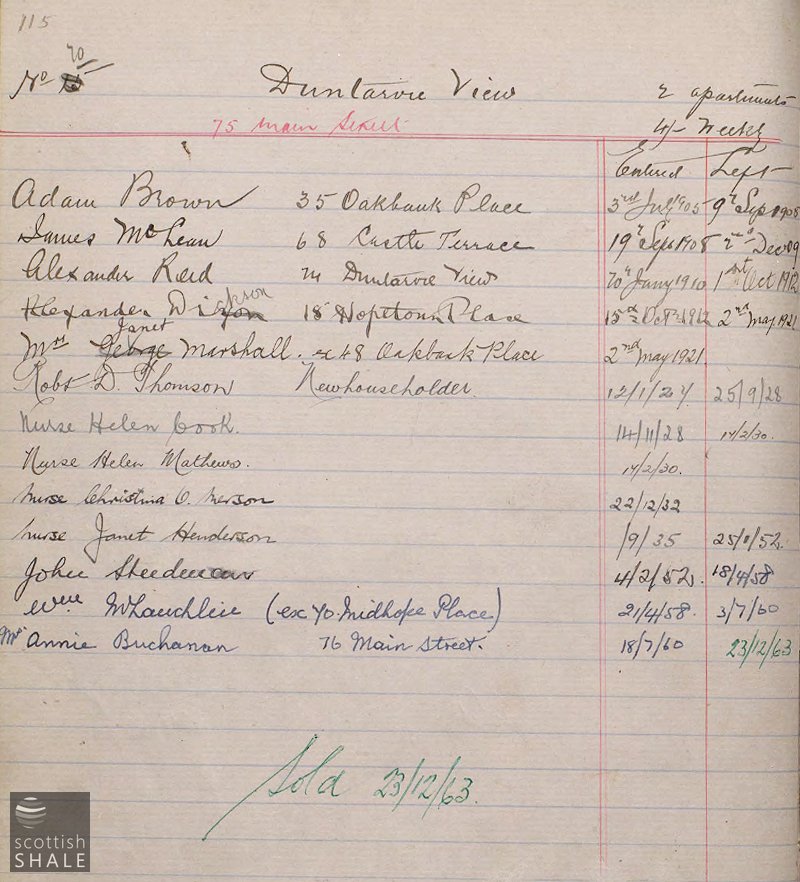 115
No 70 Duntarvie View 2 apartments
75 Main Street 4/- Weekly
Entered Left
Adam Brown 35 Oakbank Place 3rd July 1905 9th Sep 1908
James McLean 68 Castle Terrace 19th Sep 1908 2nd Dec 09
Alexander Reid 74 Duntarvie View 20th Jany 1910 1st Oct 1912
Alexander Dickson 18 Hopetoun Place 15th Oct 1912 2nd May 1921
Mrs George Janet Marshall. ex 48 Oakbank Place 2nd May 1921.
Robt D. Thomson Newhouseholder. 12/1/27 25/9/28
Nurse Helen Cook. 14/11/28 14/2/30.
Nurse Helen Mathews. 14/2/30.
Nurse Christina O. Merson 22/12/32
Nurse Janet Henderson /9/35 25/1/52.
John Steedman 4/2/52. 18/4/58
Wm McLauchlin (ex 40 Midhope Place) 21/4/58. 3/7/60
Mrs Annie Buchanan 76 Main Street. 18/7/60 23/12/63
Sold 23/12/63.
scottish
SHALE